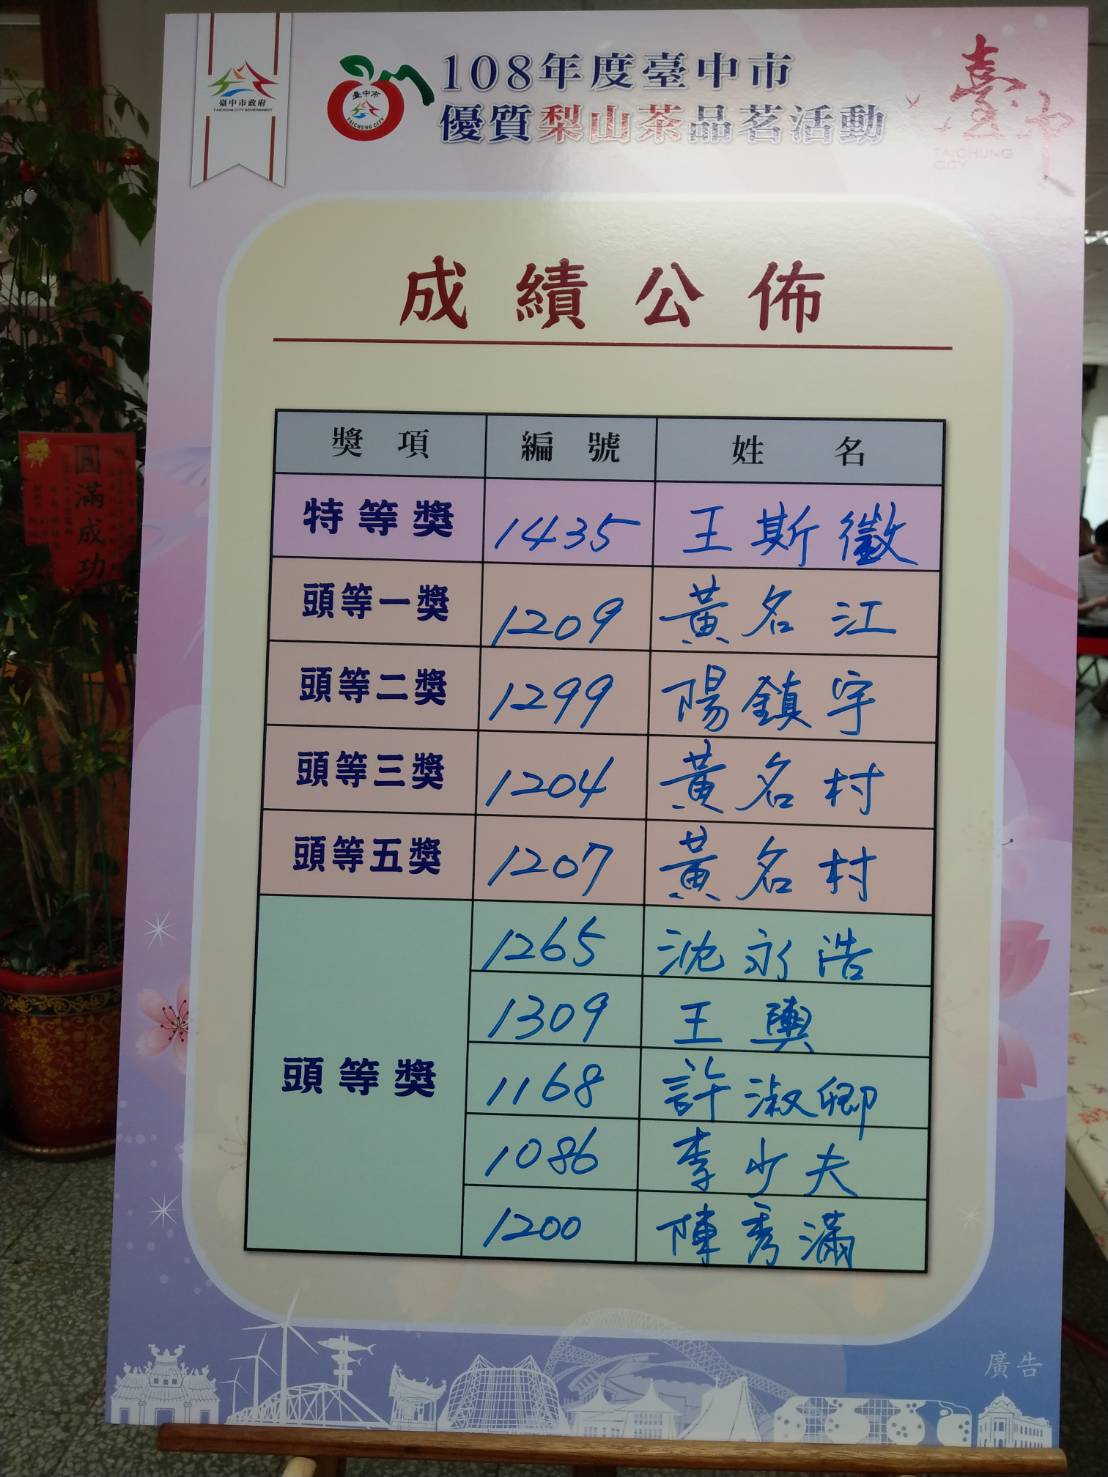 臺中市政府
TAICHUNG CITY GOVERNMENT
臺中市
TAICHUNG CITY
108年度臺中市
優質梨山茶品茗活動
臺中
TAICHUNG
CITY
成績公佈
獎項 編號 姓名
特等獎 1435 王斯徽
頭等一獎 1209 黃名江
頭等二獎 1299 陽鎮宇
頭等三獎 1204 黃名村
頭等五獎 1207 黃名村
頭等獎
1265 沈永浩
1309 王輿
1168 許淑卿
1086 李少夫
1200 陳秀滿
廣告
圓滿成功